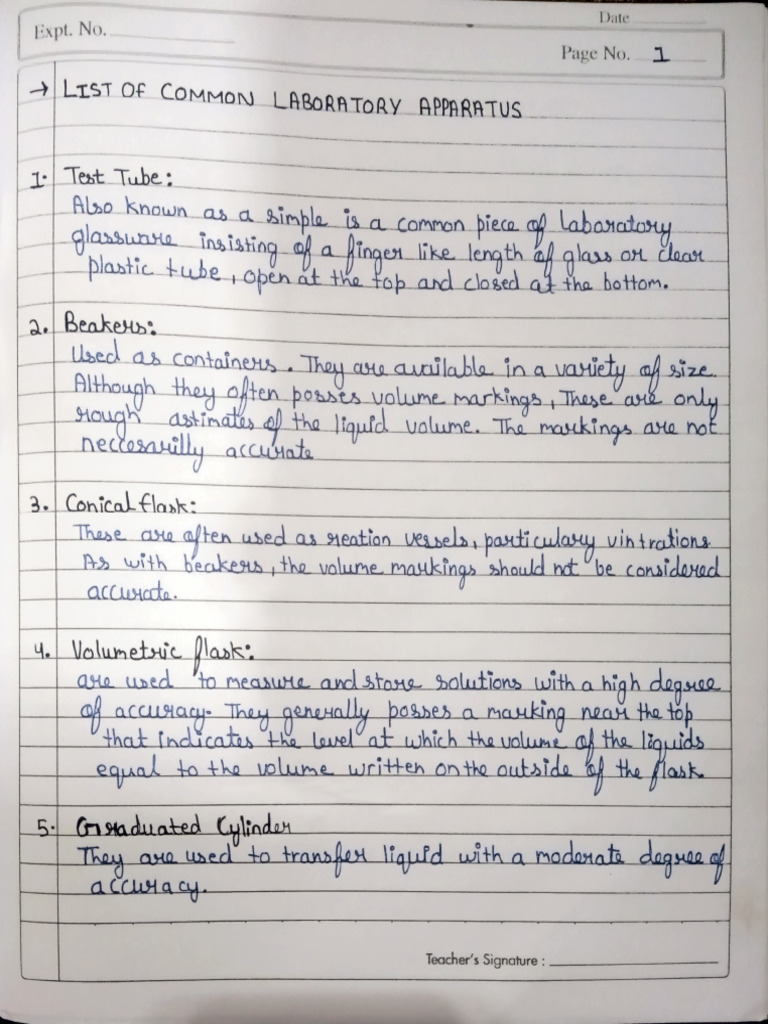 Date
Expt. No.
Page No. 1
→ LIST OF COMMON LABORATORY APPARATUS
1. Test Tube:
Also known as a simple is a common piece of laboratory
glassware insisting of a finger like length of glass or clear
plastic tube, open at the top and closed at the bottom.
2. Beakers:
Used as containers. They are available in a variety of size.
Although they often posses volume markings, These are only
rough astimates of the liquid volume. The markings are not
neccesarilly accurate
3. Conical flask:
These are often used as reation vessels, particulary vintrations.
As with beakers, the volume markings should not be considered
accurate.
4. Volumetric flask:
are used to measure and store solutions with a high degree
of accuracy. They generally posses a marking near the top
that indicates the level at which the volume of the liquids
equal to the volume written on the outside of the flask.
5. Graduated Cylinder
They are used to transfer liquid with a moderate degree of
accuracy.
Teacher's Signature :